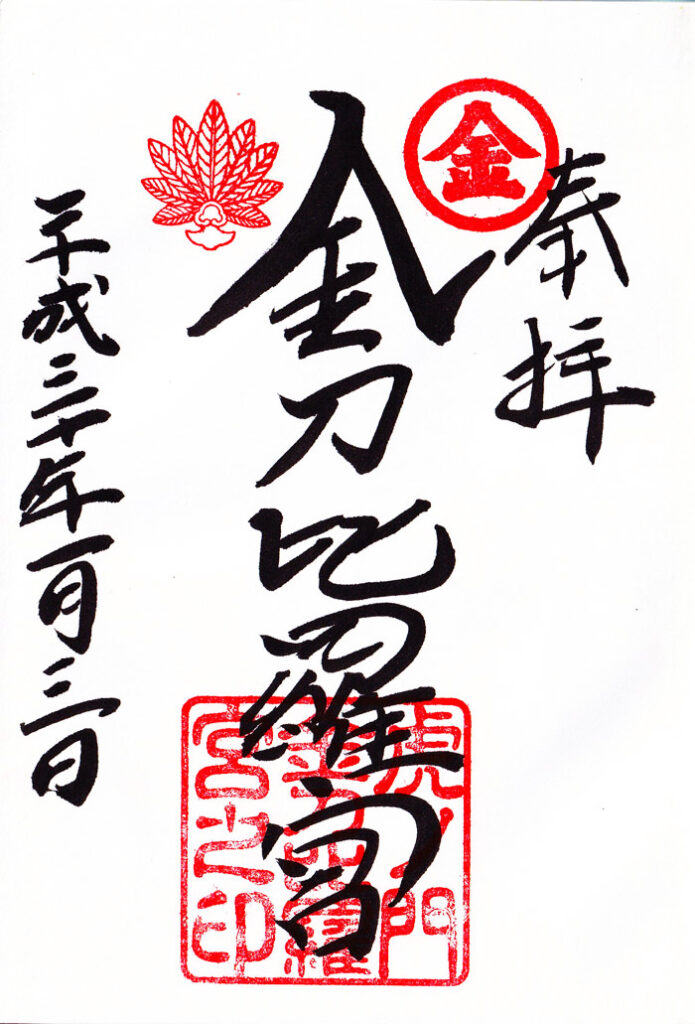 奉拝
金
金刀比羅宮
虎ノ門
金刀比羅
宮之印
平成三十年一月三日